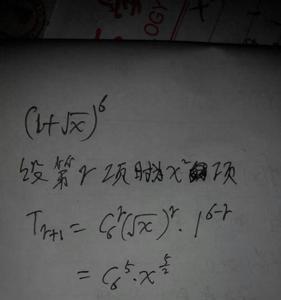 (1+√x)^6
设第r项时为x²项
T_{r+1} = C_6^r (√x)^r · 1^{6-r}
= C_6^5 · x^{5/2}